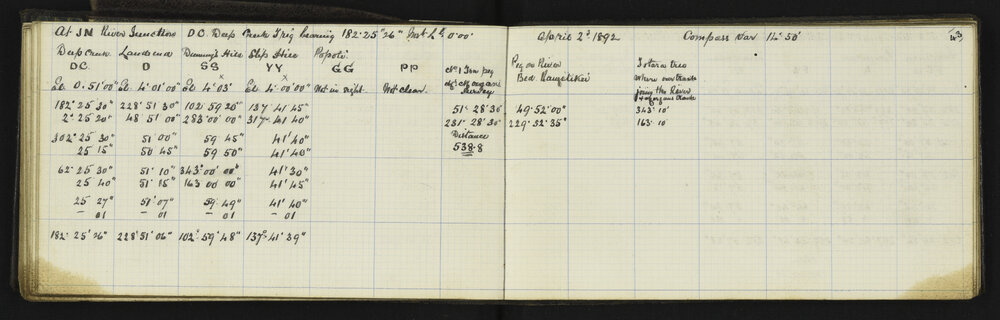 At JN River Junction D.C. Deep Creek Trig bearing 182° 25' 26" Inst Lt 0'00' April 2d 1892 Compass Var 14° 50' 43
Deep Creek Landena Dunning's Hill Slip Hill Popoti Peg on River Totara tree
DC D SS YY GG PP No 1 Iron peg Bed Rangitikei where our traverse
El 0. 51' 00" El 4. 01' 00" El 4. 03' El 4. 00' 00" Not in sight. Not clear. of Morgans Survey joins the River
& Morgans traverse
182° 25' 30" 228° 51' 30" 102° 59' 30" 137° 41' 45" 51° 28' 30" 49° 52' 00" 343° 10'
2° 25' 20" 48° 51' 00" 283° 00' 00" 317° 41' 40" 231° 28' 30" 229° 32' 35" 163° 10'
302° 25' 30" 51' 00" 59' 45" 41' 40" Distance
25' 15" 50' 45" 59' 50" 41' 40" 538.8
62° 25' 30" 51' 10" 343° 00' 00" 41' 30"
25' 40" 51' 15" 163 00' 00" 41' 45"
25' 27" 51' 07" 59' 49" 41' 40"
– 01 – 01 – 01 – 01
182° 25' 26" 228° 51' 06" 102° 59' 48" 137° 41' 39"